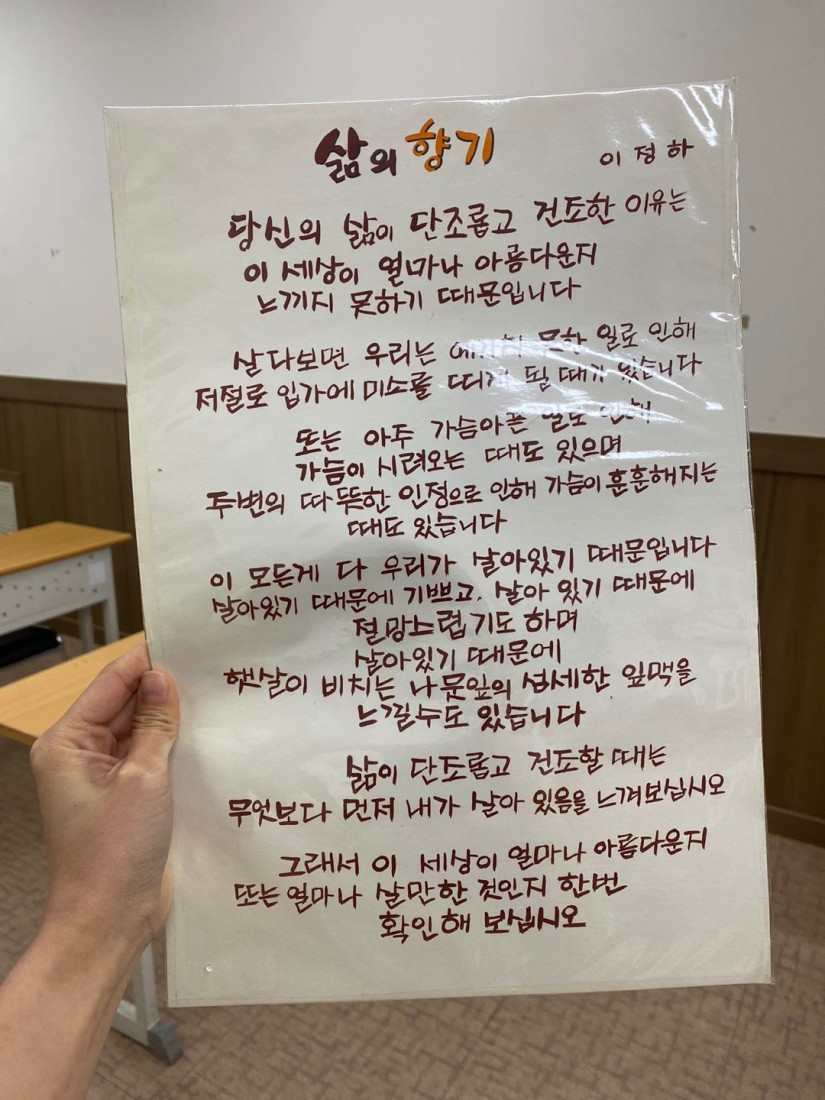 삶의 향기
이정하
당신의 삶이 단조롭고 건조한 이유는
이 세상이 얼마나 아름다운지
느끼지 못하기 때문입니다
살다보면 우리는 못한 일로 인해
저절로 입가에 미소를 띠게 될 때가 있습니다
또는 아주 가슴아픈 일로 인해
가슴이 시려오는 때도 있으며
주변의 따뜻한 인정으로 인해 가슴이 훈훈해지는
때도 있습니다
이 모든게 다 우리가 살아있기 때문입니다
살아있기 때문에 기쁘고, 살아 있기 때문에
절망스럽기도 하며
살아있기 때문에
햇살이 비치는 나뭇잎의 섬세한 잎맥을
느낄수도 있습니다
삶이 단조롭고 건조할 때는
무엇보다 먼저 내가 살아 있음을 느껴보십시오
그래서 이 세상이 얼마나 아름다운지
또는 얼마나 살만한 것인지 한번
확인해 보십시오